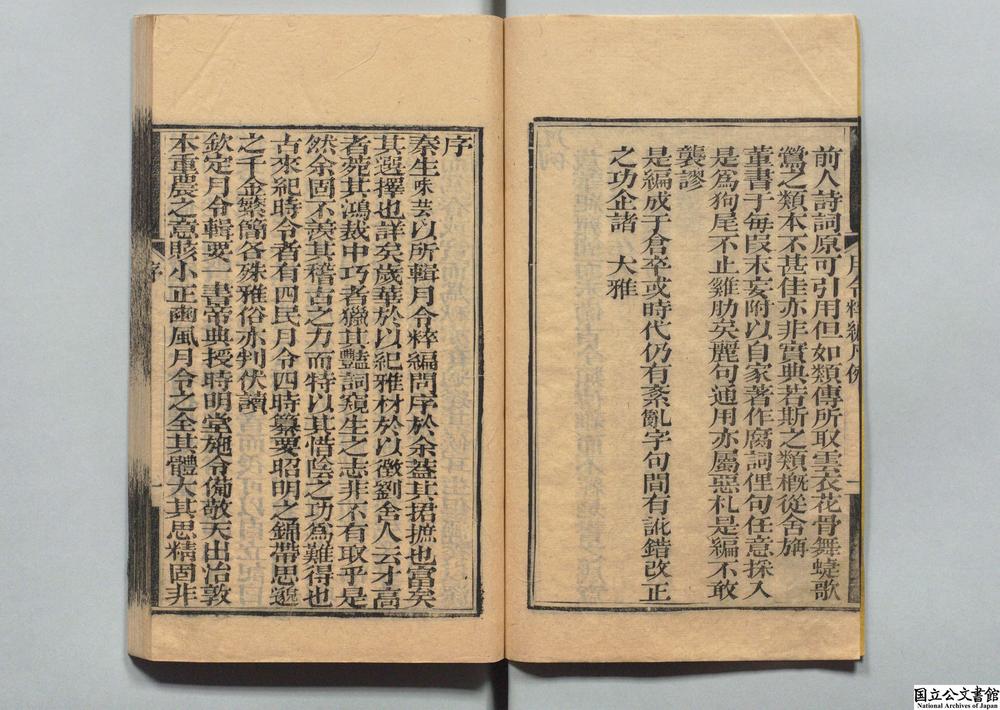 前人詩詞原可引用但如類傳所取雲衣花骨舞蜨歌
鶯之類本不甚佳亦非實典若斯之類概從舍旃
董書于每段末妄附以自家著作腐詞俚句任意採入
是為狗尾不止雞肋矣麗句通用亦屬惡札是編不敢
襲謬
是編成于倉卒或時代仍有紊亂字句間有訛錯改正
之功企諸 大雅
月令粹編凡例
序
秦生味芸以所輯月令粹編問序於余蓋其捃摭也富矣
其選擇也詳矣歲華於以紀雅材於以徵劉舍人云才高
者菀其鴻裁中巧者獵其豔詞窺生之志非不有取乎是
然余固不羨其稽古之力而特以其惜陰之功為難得也
古來紀時令者有四民月令四時纂要昭明之錦帶思邈
之千金繁簡各殊雅俗亦判伏讀
欽定月令輯要一書帝典授時明堂施令備敬天出治敦
本重農之意賅小正豳風月令之全其體大其思精固非
序
一
国立公文書館
National Archives of Japan